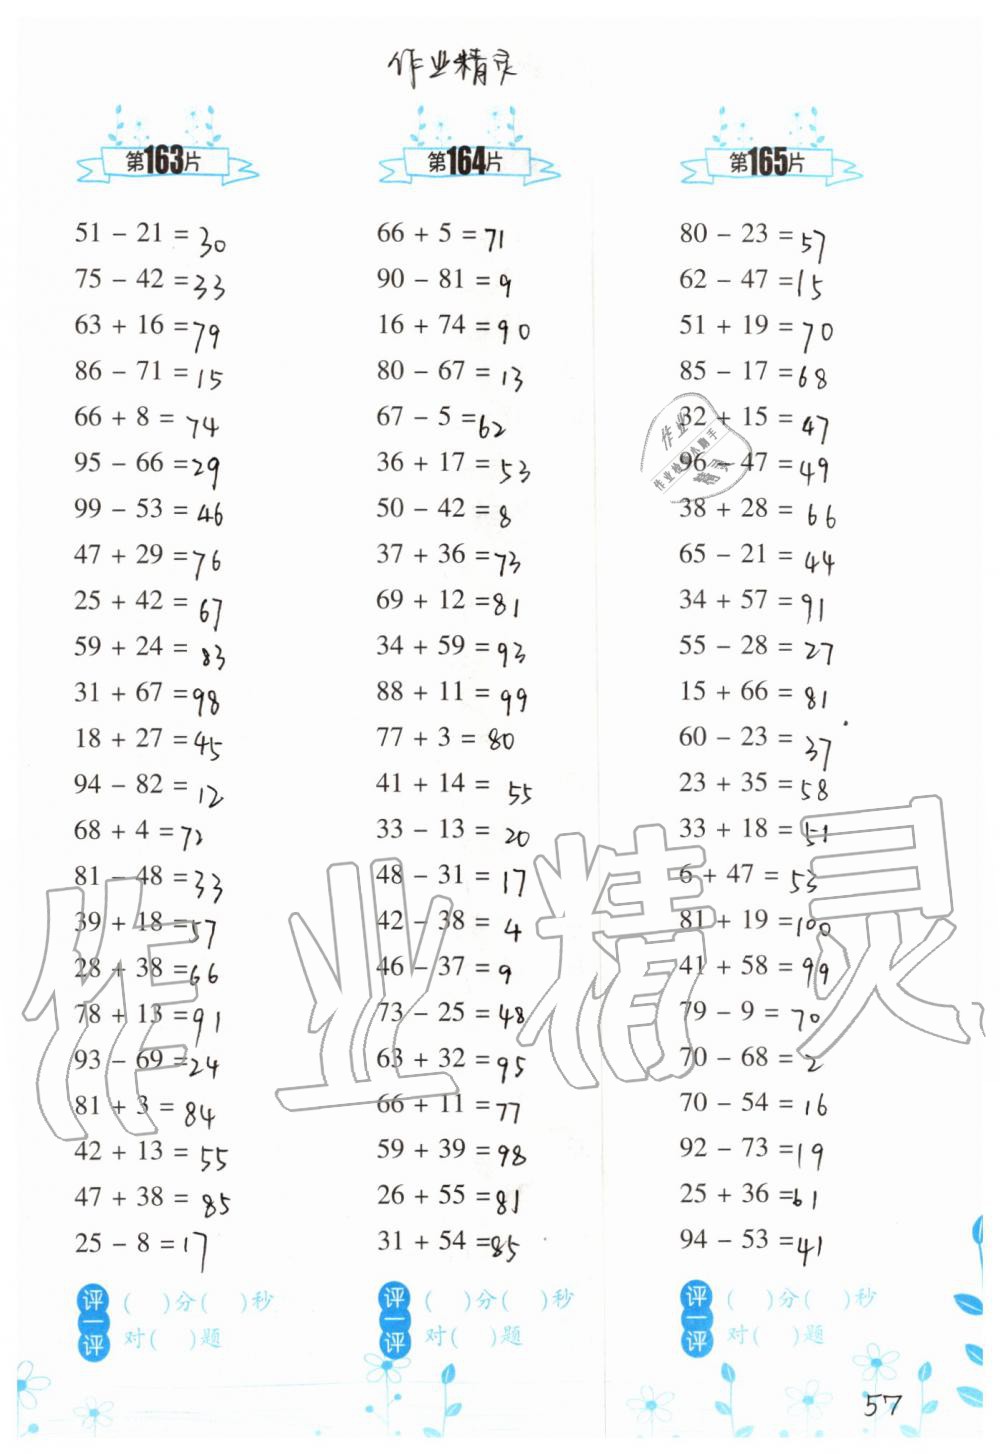 作业精灵
第163片
51 − 21 = 30
75 − 42 = 33
63 + 16 = 79
86 − 71 = 15
66 + 8 = 74
95 − 66 = 29
99 − 53 = 46
47 + 29 = 76
25 + 42 = 67
59 + 24 = 83
31 + 67 = 98
18 + 27 = 45
94 − 82 = 12
68 + 4 = 72
81 − 48 = 33
39 + 18 = 57
28 + 38 = 66
78 + 13 = 91
93 − 69 = 24
81 + 3 = 84
42 + 13 = 55
47 + 38 = 85
25 − 8 = 17
评一评
( )分( )秒
对( )题
第164片
66 + 5 = 71
90 − 81 = 9
16 + 74 = 90
80 − 67 = 13
67 − 5 = 62
36 + 17 = 53
50 − 42 = 8
37 + 36 = 73
69 + 12 = 81
34 + 59 = 93
88 + 11 = 99
77 + 3 = 80
41 + 14 = 55
33 − 13 = 20
48 − 31 = 17
42 − 38 = 4
46 − 37 = 9
73 − 25 = 48
63 + 32 = 95
66 + 11 = 77
59 + 39 = 98
26 + 55 = 81
31 + 54 = 85
评一评
( )分( )秒
对( )题
第165片
80 − 23 = 57
62 − 47 = 15
51 + 19 = 70
85 − 17 = 68
32 + 15 = 47
96 − 47 = 49
38 + 28 = 66
65 − 21 = 44
34 + 57 = 91
55 − 28 = 27
15 + 66 = 81
60 − 23 = 37
23 + 35 = 58
33 + 18 = 51
6 + 47 = 53
81 + 19 = 100
41 + 58 = 99
79 − 9 = 70
70 − 68 = 2
70 − 54 = 16
92 − 73 = 19
25 + 36 = 61
94 − 53 = 41
评一评
( )分( )秒
对( )题
作业
精灵
作业精灵
57